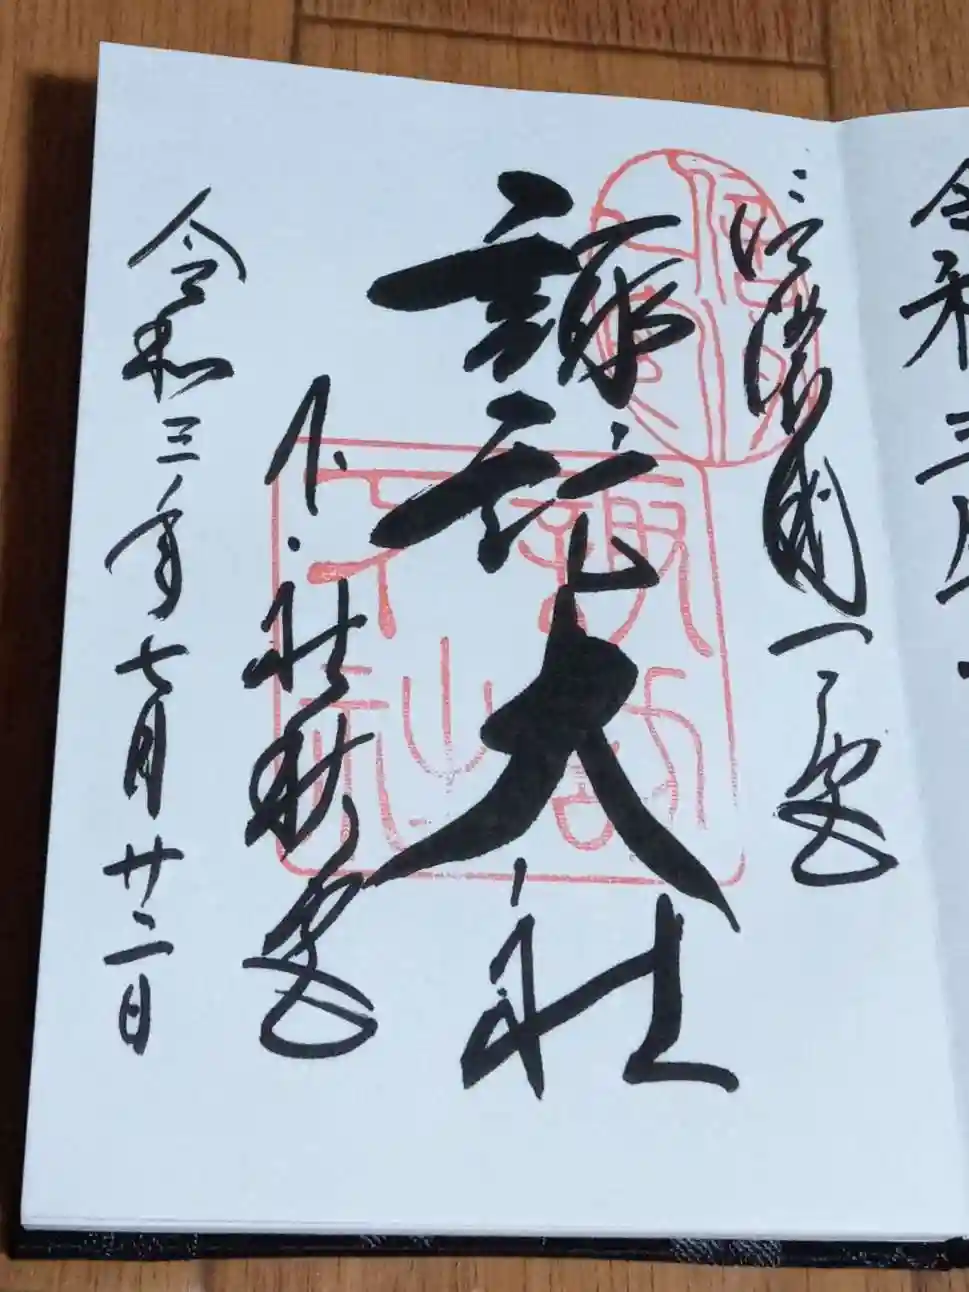 令和三
信濃國一之宮
諏訪大社
下社秋宮
令和三年七月廿二日